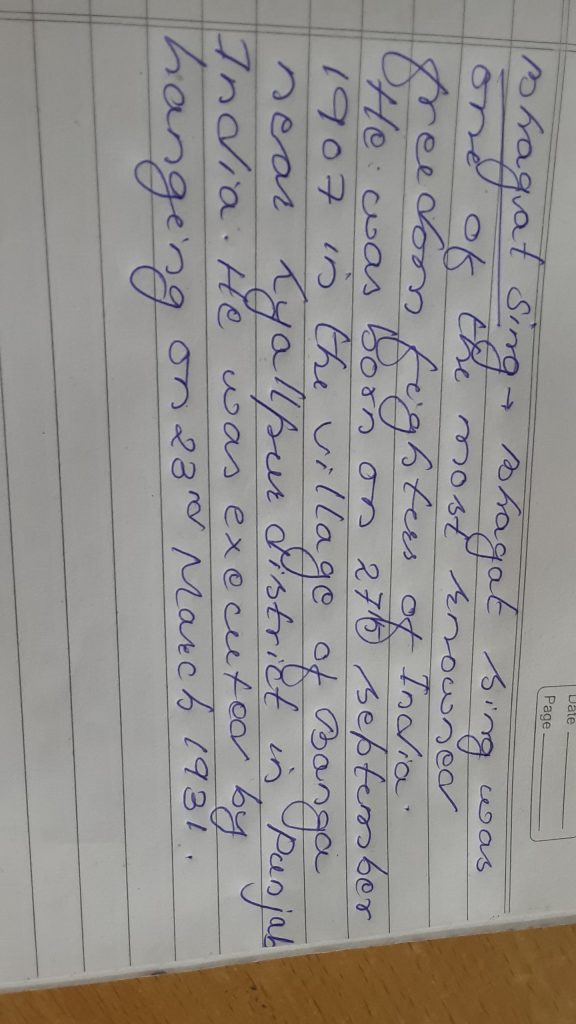 Date
Page
Bhagat Sing → Bhagat Sing was
one of the most knowner
freedom fighters of India.
He was Born on 27th September
1907 in the village of Banga
near Lyallpur district in Punjab
India. He was executed by
hanging on 23rd March 1931.